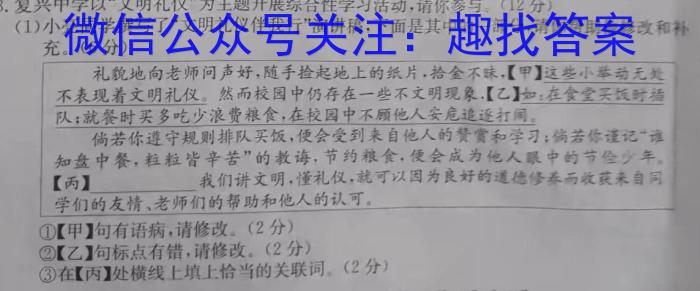 微信公众号关注：趣找答案
复兴中学以“文明礼仪”为主题开展综合性学习活动，请你参与。（12分）
充。
礼貌地向老师问声好，随手捡起地上的纸片，拾金不昧，【甲】这些小举动无处
不表现着文明礼仪。然而校园中仍存在一些不文明现象，【乙】如：在食堂买饭时插
队；就餐时买多吃少浪费粮食，在校园中不顾他人安危追逐打闹。
倘若你遵守规则排队买饭，便会受到来自他人的赞赏和学习；倘若你谨记“谁
知盘中餐，粒粒皆辛苦”的教诲，节约粮食，便会成为他人眼中的节俭少年。
【丙】 我们讲文明，懂礼仪，就可以因为良好的道德修养而收获来自同
学们的友情、老师们的帮助和他人的认可。
①【甲】句有语病，请修改。（2分）
②【乙】句标点有错，请修改。（2分）
③在【丙】处横线上填上恰当的关联词。（2分）